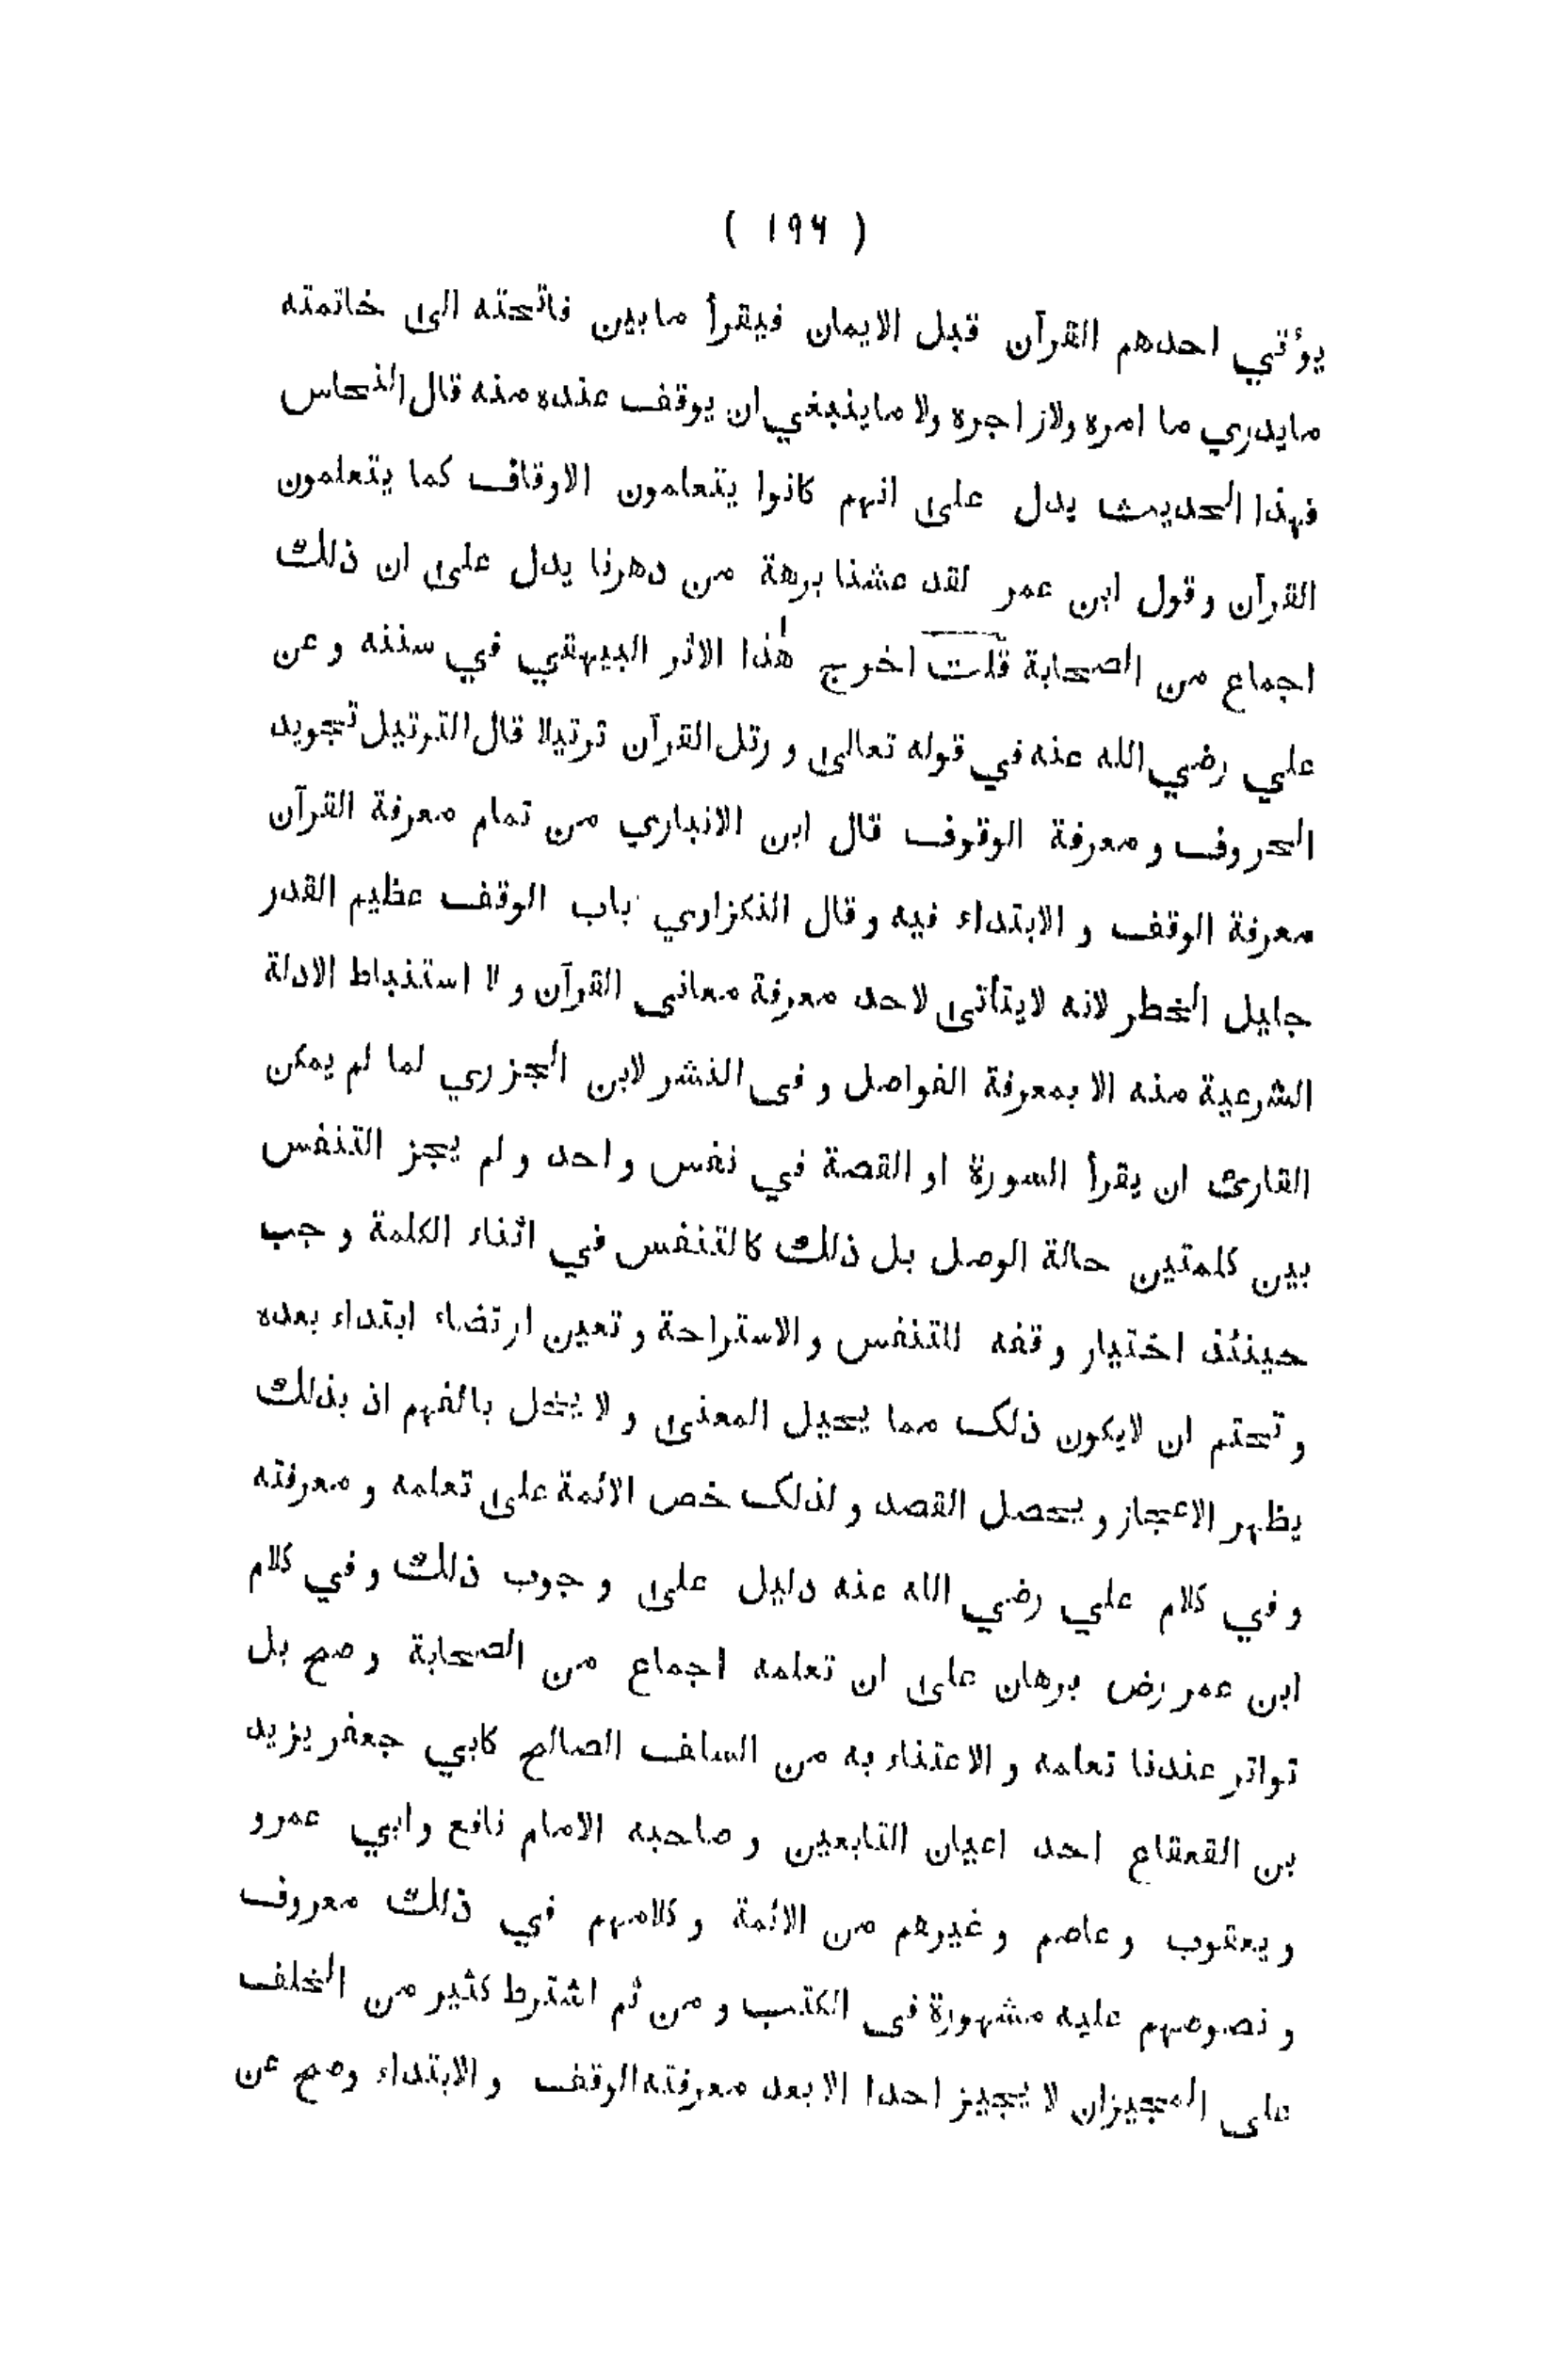 ( ١٩٦ )
يؤتي احدهم القرآن قبل الايمان فيقرأ مابين فاتحته الى خاتمته
مايدري ما امره ولازاجره ولا ماينبغي ان يوقف عنده منه قال النحاس
فهذا الحديث يدل على انهم كانوا يتعلمون الاوقاف كما يتعلمون
القرآن وقول ابن عمر لقد عشنا برهة من دهرنا يدل على ان ذلك
اجماع من الصحابة قلت اخرج هٰذا الاثر البيهقي في سننه و عن
علي رضي الله عنه في قوله تعالى و رتل القرآن ترتيلا قال الترتيل تجويد
الحروف و معرفة الوقوف قال ابن الانباري من تمام معرفة القرآن
معرفة الوقف و الابتداء فيه و قال النكزاوي باب الوقف عظيم القدر
جليل الخطر لانه لايتأتى لاحد معرفة معانى القرآن و لا استنباط الادلة
الشرعية منه الا بمعرفة الفواصل و فى النشر لابن الجزري لما لم يمكن
القارئ ان يقرأ السورة او القصة في نفس واحد و لم يجز التنفس
بين كلمتين حالة الوصل بل ذلك كالتنفس في اثناء الكلمة و جب
حينئذ اختيار وقفه للتنفس و الاستراحة و تعين ارتضاء ابتداء بعده
و تحتم ان لايكون ذلك مما يحيل المعنى و لا يخل بالفهم اذ بذلك
يظهر الاعجاز و يحصل القصد و لذلك خص الائمة على تعلمه و معرفته
و في كلام علي رضي الله عنه دليل على و جوب ذلك و في كلام
ابن عمر رض برهان على ان تعلمه اجماع من الصحابة و صح بل
تواتر عندنا تعلمه و الاعتناء به من السلف الصالح كابي جعفر يزيد
بن القعقاع احد اعيان التابعين و صاحبه الامام نافع و ابي عمرو
و يعقوب و عاصم و غيرهم من الائمة و كلامهم في ذلك معروف
و نصوصهم عليه مشهورة فى الكتب و من ثم اشترط كثير من الخلف
على المجيزان لا يجيز احدا الا بعد معرفته الوقف و الابتداء وصح عن